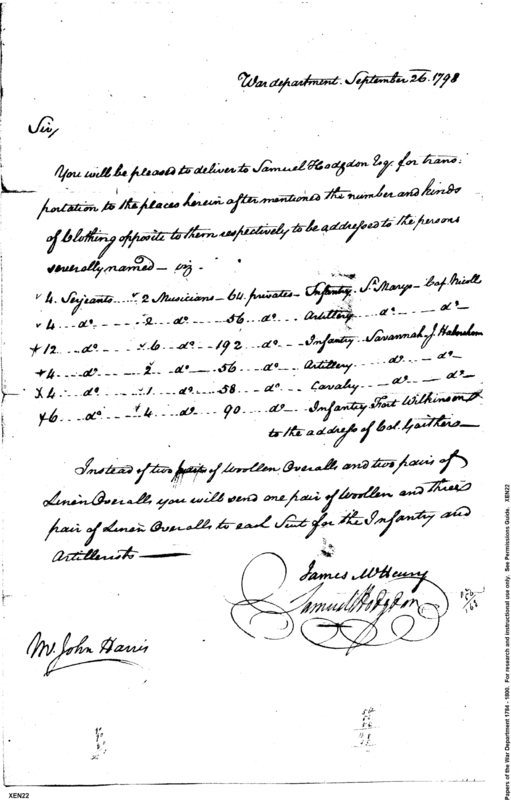 War department. September 26. 1798
Sir,
You will be pleased to deliver to Samuel Hodgdon Esq. for trans:
portation to the places herein after mentioned the number and kinds
of Clothing opposite to them respectively to be addressed to the persons
severally named — viz.
4. Serjeants 2 Musicians — 64. privates — Infantry. St Marys — Cap. Nicoll
4 do 2 do 56 do Artillery do — do —
12 do 6 do 192 do Infantry Savannah J. Habersham
4 do 2 do 56 do Artillery do — do —
4 do 1 do 58 do Cavalry do — do —
6 do 4 do 90 do Infantry Fort Wilkinson
to the address of Col. Gaither —
Instead of two of Woollen Overalls and two pairs of
Linen Overalls you will send one pair of Woollen and three
pair of Linen Overalls to each Suit for the Infantry and
Artillerists —
James McHenry
Samuel Hodgdon
Mr. John Harris
XEN22
Papers of the War Department 1784 - 1800. For research and instructional use only. See Permissions Guide. XEN22